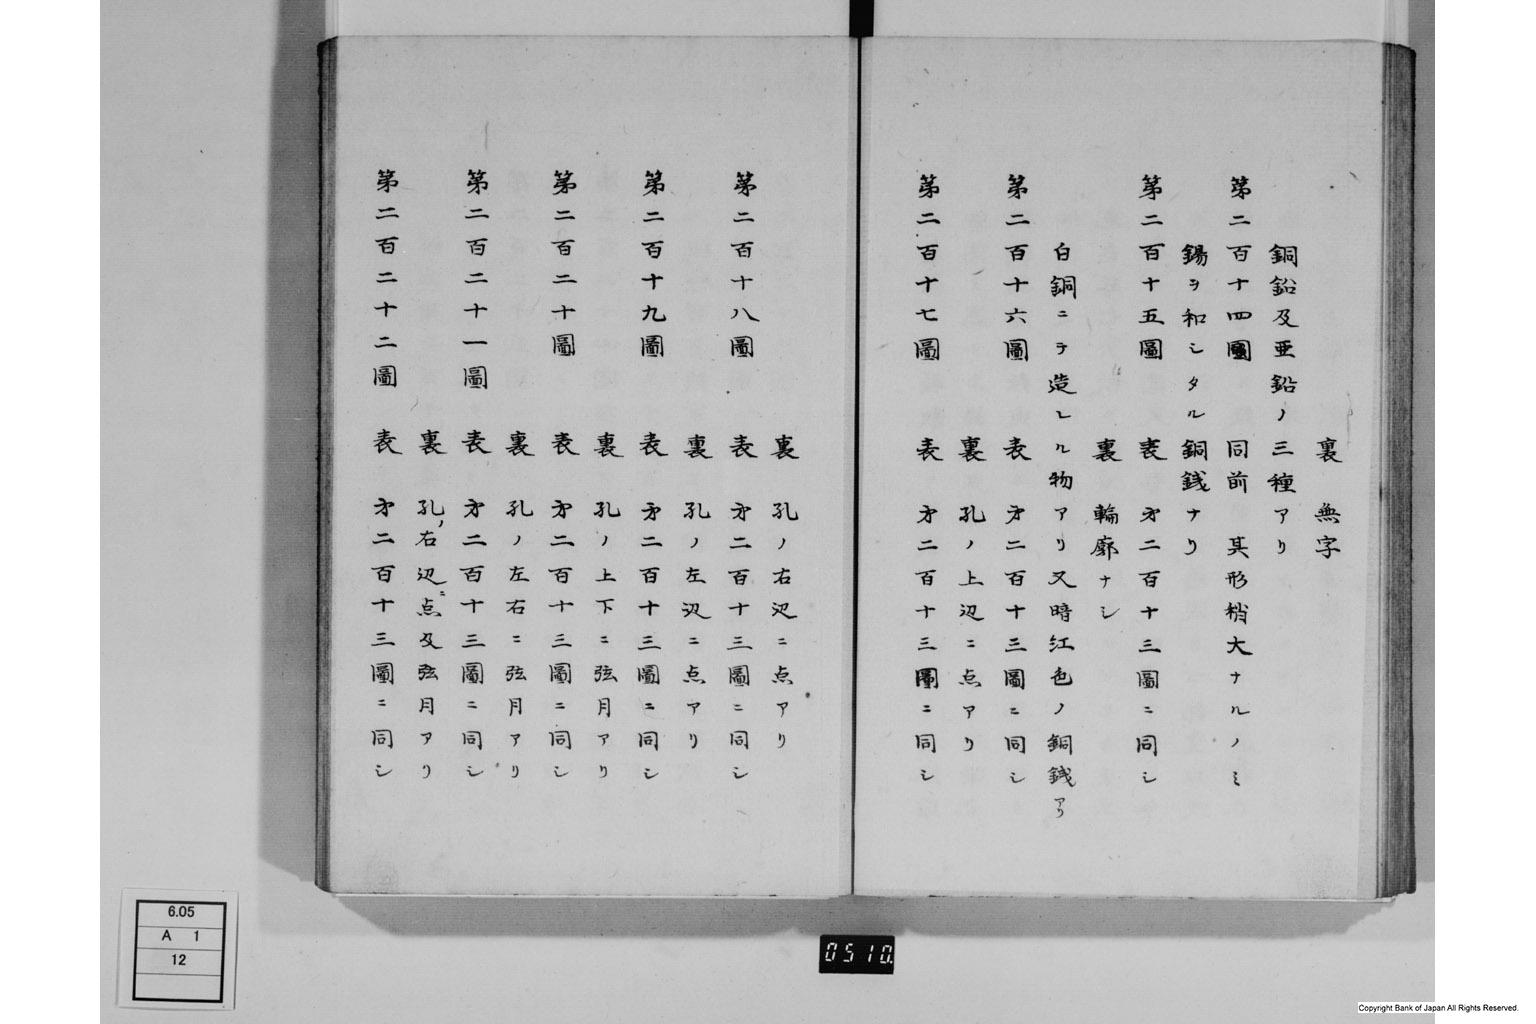 裏 無字
銅鉛及亜鉛ノ三種アリ
第二百十四圖 同前 其形稍大ナルノミ
錫ヲ和シタル銅銭ナリ
第二百十五圖 表 㐧二百十三圖ニ同シ
裏 輪廓ナシ
白銅ニテ造レル物アリ又暗江色ノ銅銭アリ
第二百十六圖 表 㐧二百十三圖ニ同シ
裏 孔ノ上辺ニ点アリ
第二百十七圖 表 㐧二百十三圖ニ同シ
裏 孔ノ右辺ニ点アリ
第二百十八圖 表 㐧二百十三圖ニ同シ
裏 孔ノ左辺ニ点アリ
第二百十九圖 表 㐧二百十三圖ニ同シ
裏 孔ノ上下ニ弦月アリ
第二百二十圖 表 㐧二百十三圖ニ同シ
裏 孔ノ左右ニ弦月アリ
第二百二十一圖 表 㐧二百十三圖ニ同シ
裏 孔ノ右辺ニ点及弦月アリ
第二百二十二圖 表 㐧二百十三圖ニ同シ
6.05
A 1
12
0510.
Copyright Bank of Japan All Rights Reserved.